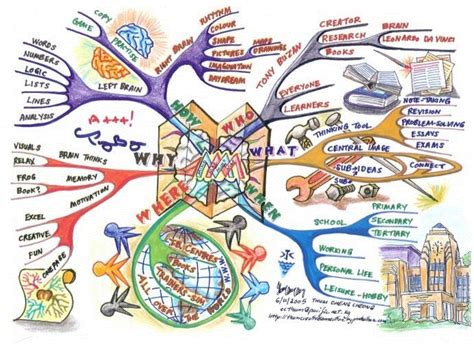 HOW
COPY
GAME
PRACTISE
RIGHT BRAIN
RHYTHM
COLOUR
SHAPE
PICTURES
IMAGINATION
DAYDREAM
MORE
DRAWINGS
LEFT BRAIN
WORDS
NUMBERS
LOGIC
LISTS
LINES
ANALYSIS
A+++!
WHO
TONY BUZAN
CREATOR
RESEARCH
BOOKS
BRAIN
LEONARDO DA VINCI
EVERYONE
LEARNERS
WHAT
THINKING TOOL
CENTRAL IMAGE
SUB-IDEAS
CONNECT
NOTE-TAKING
REVISION
PROBLEM-SOLVING
ESSAYS
EXAMS
WHEN
SCHOOL
PRIMARY
SECONDARY
TERTIARY
WORKING
PERSONAL LIFE
LEISURE-HOBBY
WHERE
BOOKS
ALL OVER
THE WORLD
WHY
BRAIN THINKS
VISUALS
RELAX
MEMORY
FROG
BOOK?
MOTIVATION
EXCEL
CREATIVE
FUN
COMPARE
6/01/2005
THUM CHENG CHEONG